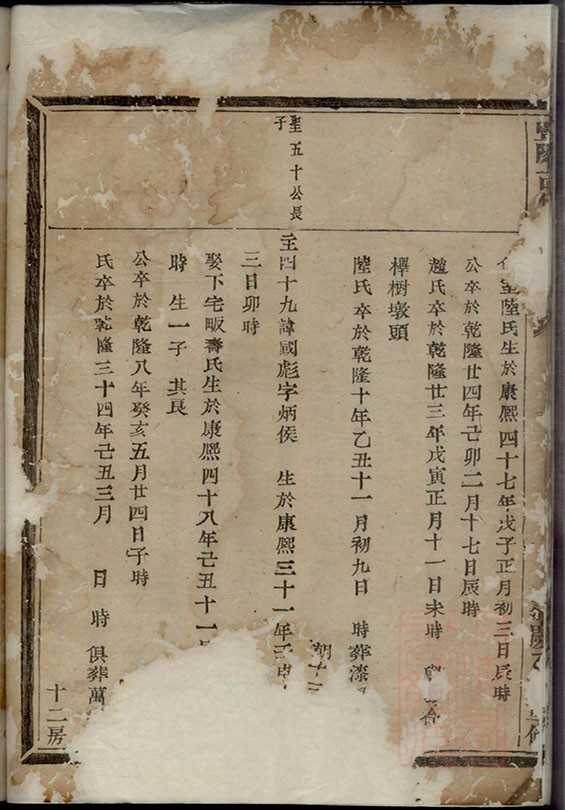 陸氏生於康熙四十七年戊子正月初三日辰時
公卒於乾隆廿四年己卯二月十七日辰時
趙氏卒於乾隆廿三年戊寅正月十一日未時
櫸樹墩頭
陸氏卒於乾隆十年乙丑十一月初九日 時葬漆
聖五十公長
子
主四十九諱國彪字炳侯 生於康熙三十一年壬申
三日卯時
娶下宅畈壽氏生於康熙四十八年己丑十一
時 生一子 其良
公卒於乾隆八年癸亥五月廿四日子時
氏卒於乾隆三十四年己丑三月 日 時俱葬萬
十二房